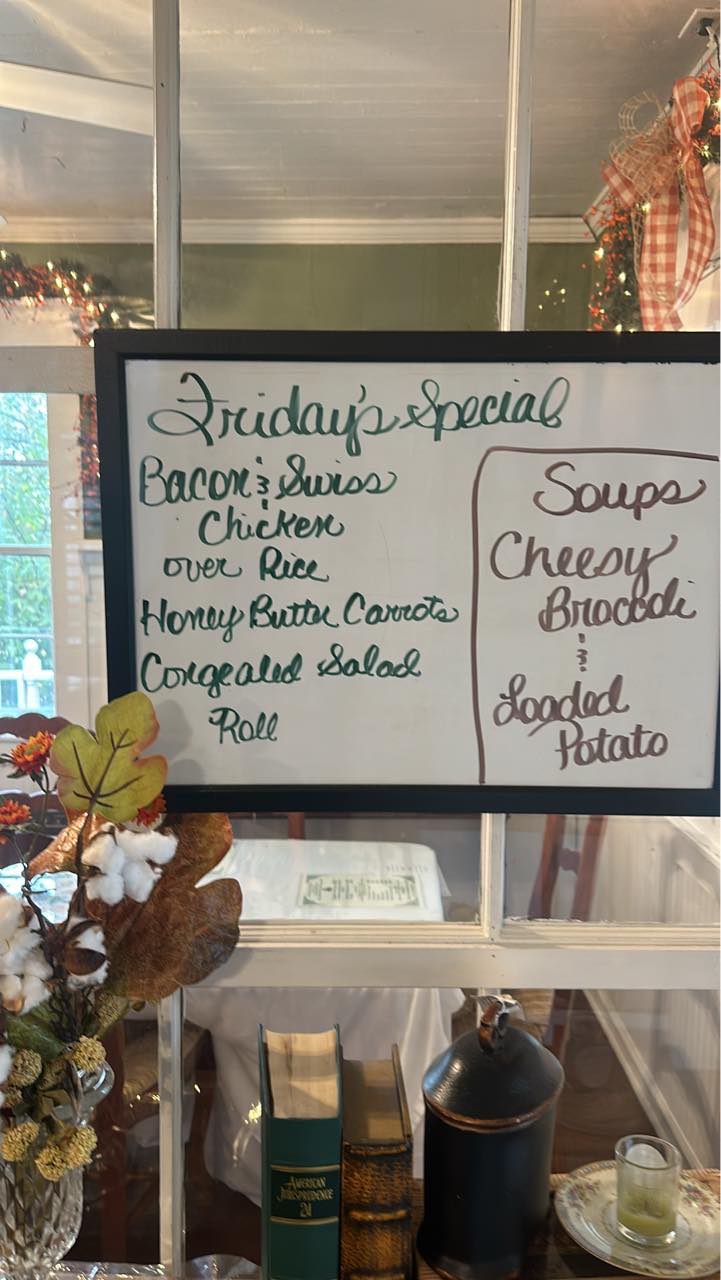 Friday's Special
Bacon & Swiss
Chicken
over Rice
Honey Butter Carrots
Congealed Salad
Roll
Soups
Cheesy
Broccoli
&
Loaded
Potato
AMERICAN
JURISPRUDENCE
2d